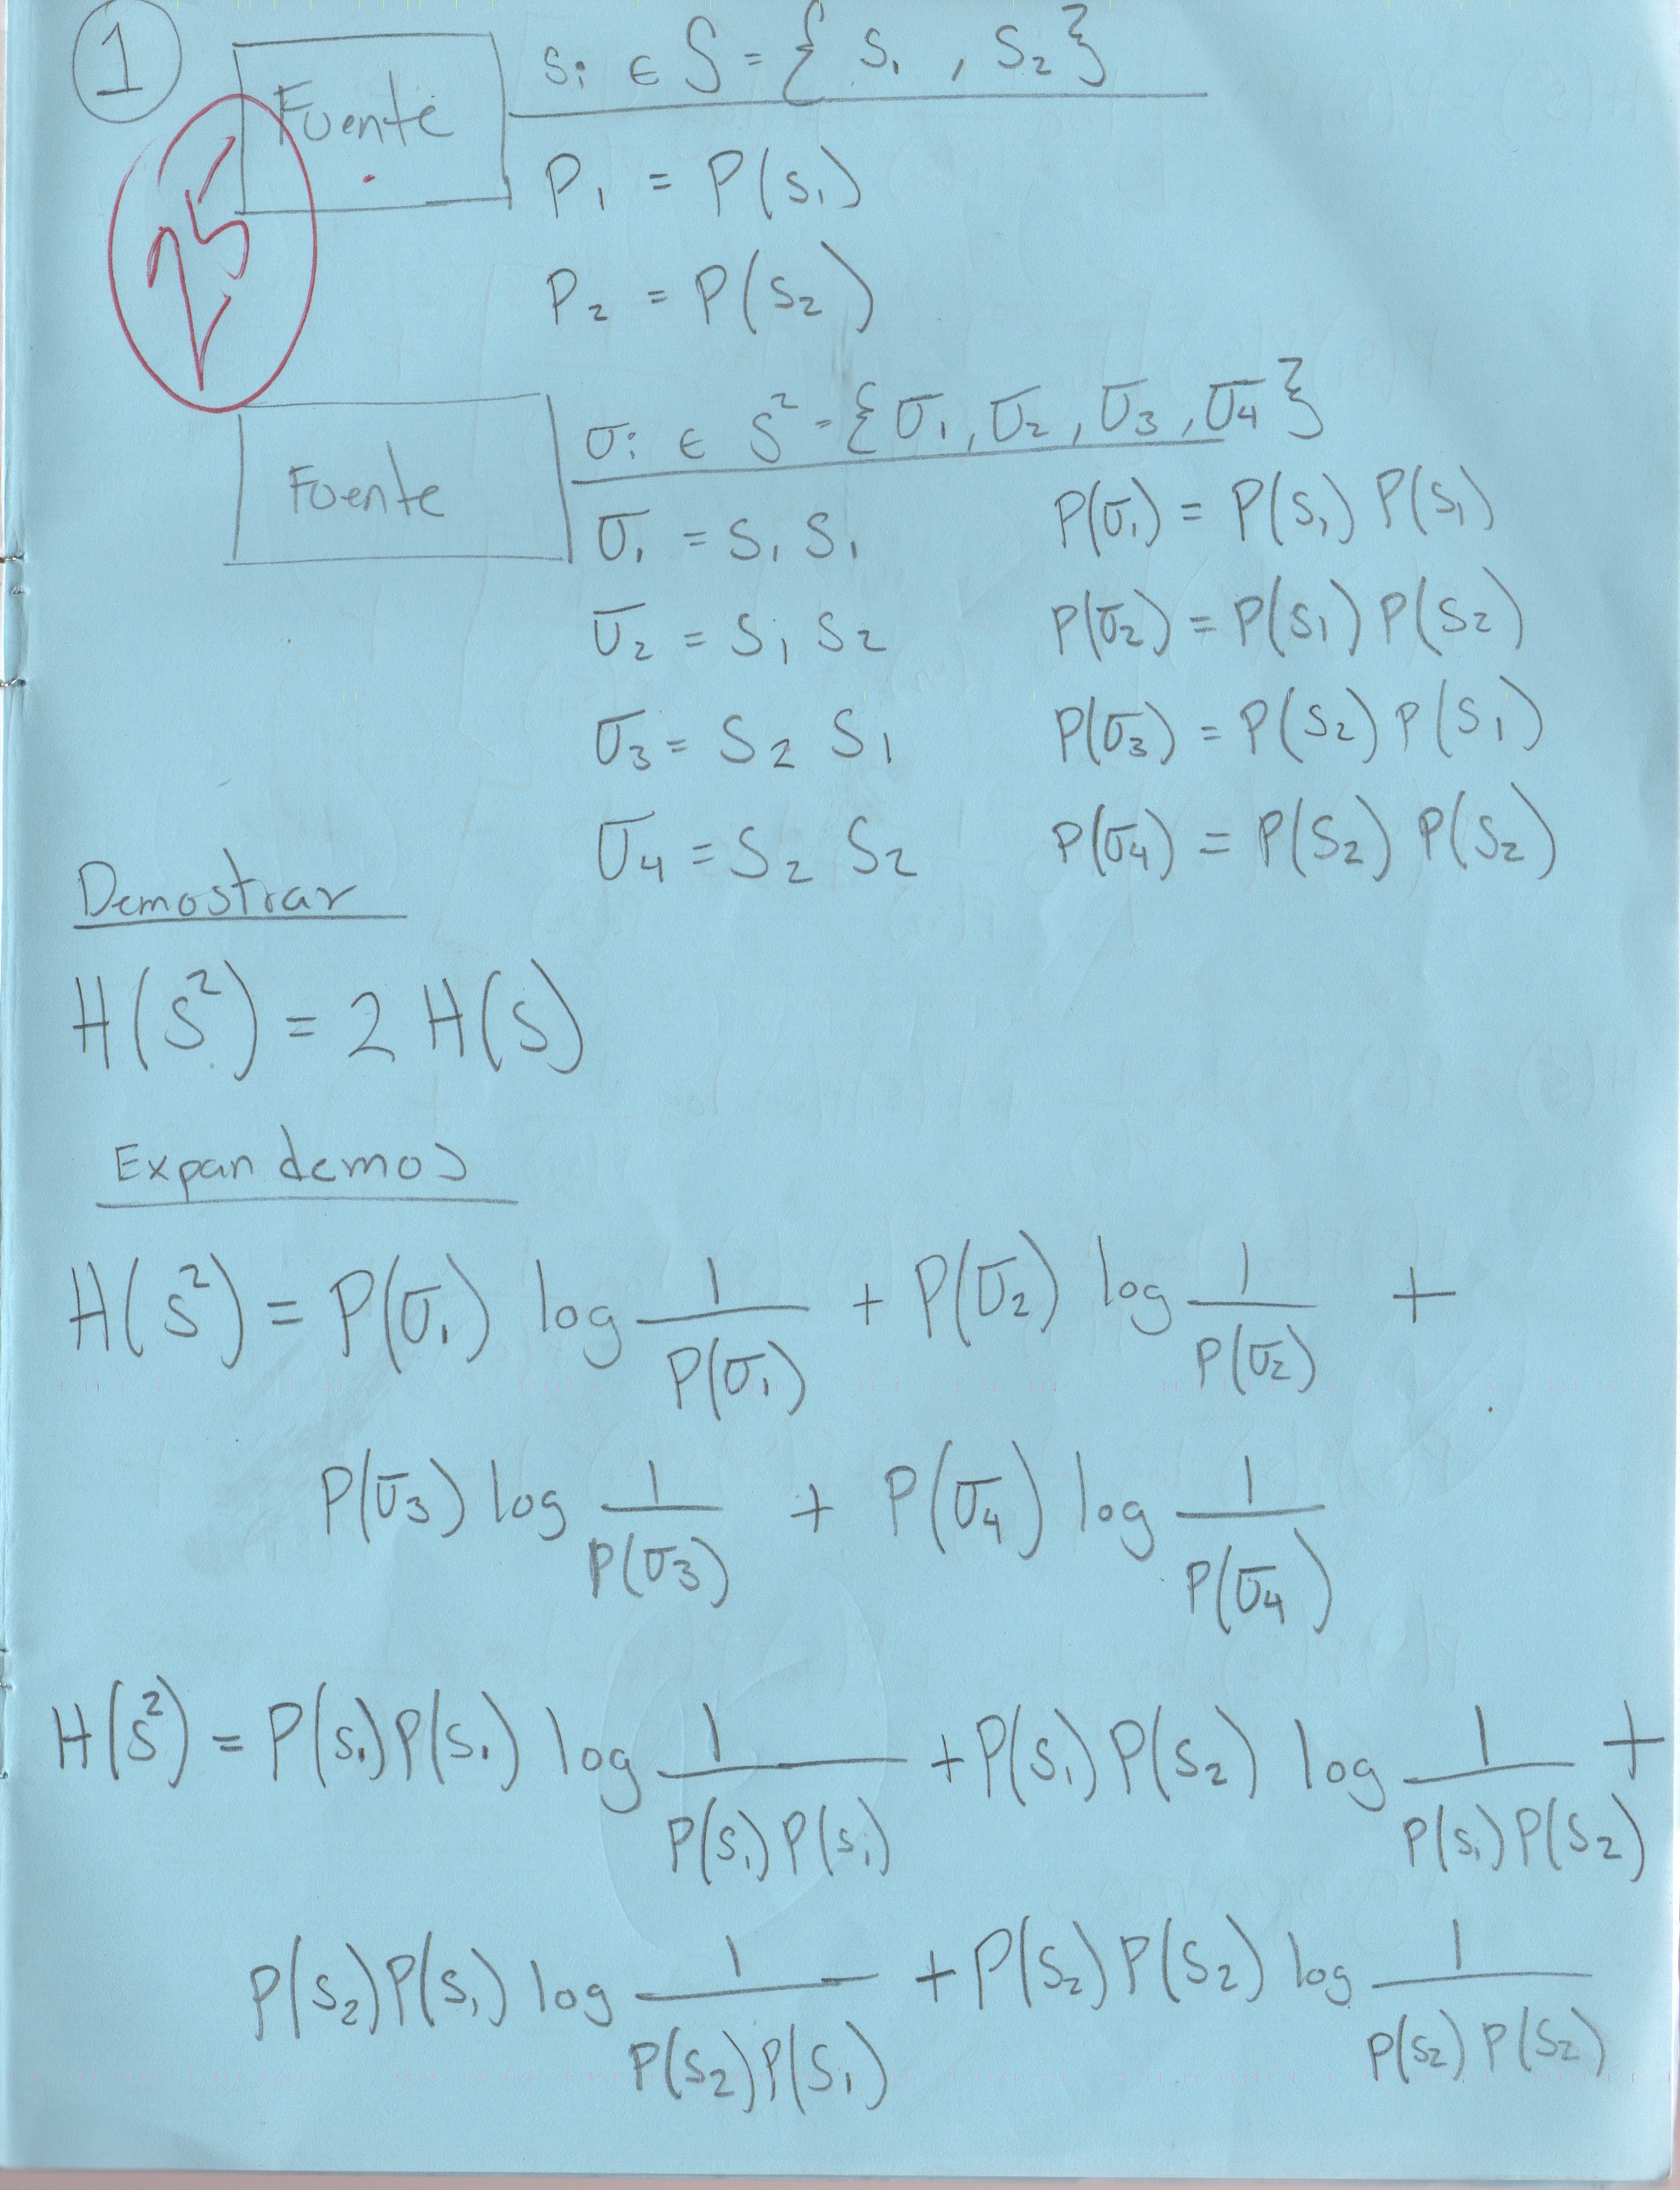 1
Fuente
si ∈ S = { s1 , s2 }
P1 = P(s1)
25
P2 = P(s2)
Fuente
σi ∈ S² = {σ1, σ2, σ3, σ4}
σ1 = S1 S1 P(σ1) = P(S1) P(S1)
σ2 = S1 S2 P(σ2) = P(S1) P(S2)
σ3 = S2 S1 P(σ3) = P(S2) P(S1)
σ4 = S2 S2 P(σ4) = P(S2) P(S2)
Demostrar
H(S²) = 2 H(S)
Expandemos
H(S²) = P(σ1) log 1/P(σ1) + P(σ2) log 1/P(σ2) +
P(σ3) log 1/P(σ3) + P(σ4) log 1/P(σ4)
H(S²) = P(S1)P(S1) log 1/P(S1)P(S1) + P(S1)P(S2) log 1/P(S1)P(S2) +
P(S2)P(S1) log 1/P(S2)P(S1) + P(S2)P(S2) log 1/P(S2)P(S2)